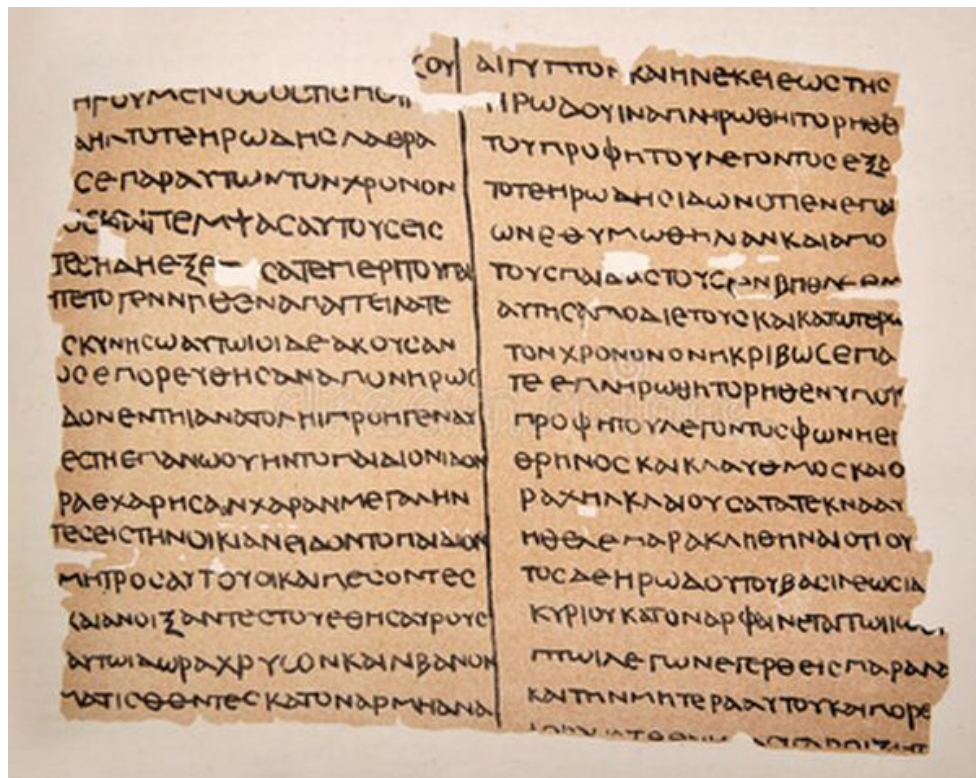 ϹΟΥ
ΗΓΟΥΜΕΝΟϹ
ΤΟΤΕΗΡΩΔΗϹΛΑΘΡΑ
ϹΕΠΑΡΑΥΤΩΝΤΟΝΧΡΟΝΟΝ
ΠΕΜΨΑϹΑΥΤΟΥϹΕΙϹ
ϹΑΤΕΠΕΡΙΤΟΥΠΑΙ
ΑΠΑΓΓΕΙΛΑΤΕ
ϹΚΥΝΗϹΩΑΥΤΩΙΟΙΔΕΑΚΟΥϹΑΝ
ΟϹΕΠΟΡΕΥΘΗϹΑΝ
ΔΟΝΕΝΤΗΙΑΝΑΤΟΛΗΙΠΡΟΗΓΕΝΑΥ
ΕϹΤΗΕΠΑΝΩΟΥΗΝΤΟΠΑΙΔΙΟΝΙΔΟΝ
ΡΑΕΧΑΡΗϹΑΝΧΑΡΑΝΜΕΓΑΛΗΝ
ΤΕϹΕΙϹΤΗΝΟΙΚΙΑΝΕΙΔΟΝΤΟΠΑΙΔΙΟΝ
ΜΗΤΡΟϹΑΥΤΟΥΟΙΚΑΙΠΕϹΟΝΤΕϹ
ΚΑΙΑΝΟΙΞΑΝΤΕϹΤΟΥϹΘΗϹΑΥΡΟΥϹ
ΑΥΤΩΙΔΩΡΑΧΡΥϹΟΝΚΑΙΛΙΒΑΝΟΝ
ΜΑΤΙϹΘΕΝΤΕϹΚΑΤΟΝΑΡΜΗΑΝΑ
ΑΙΓΥΠΤΟΝΚΑΙΗΝΕΚΕΙΕΩϹΤΗϹ
ΗΡΩΔΟΥΙΝΑΠΛΗΡΩΘΗΙΤΟΡΗΘΕ
ΤΟΥΠΡΟΦΗΤΟΥΛΕΓΟΝΤΟϹΕΞΕ
ΤΟΤΕΗΡΩΔΗϹΙΔΩΝΟΤΙΕΝΕΠΑΙ
ΩΝΕΘΥΜΩΘΗΛΙΑΝΚΑΙΑΠΟ
ΤΟΥϹΠΑΙΔΑϹΤΟΥϹΕΝΒΗΘΛΕΕΜ
ΑΥΤΗϹΑΠΟΔΙΕΤΟΥϹΚΑΙΚΑΤΩΤΕΡΩ
ΤΟΝΧΡΟΝΟΝΟΝΗΚΡΙΒΩϹΕΠΑ
ΤΕΕΠΛΗΡΩΘΗΤΟΡΗΘΕΝΥΠΟΤ
ΠΡΟΦΗΤΟΥΛΕΓΟΝΤΟϹΦΩΝΗΕΓ
ΘΡΗΝΟϹΚΑΙΚΛΑΥΘΜΟϹΚΑΙΟ
ΡΑΧΗΛΚΛΑΙΟΥϹΑΤΑΤΕΚΝΑΑΥ
ΗΘΕΛΕΠΑΡΑΚΛΗΘΗΝΑΙΟΤΙΟΥ
ΤΟϹΔΕΗΡΩΔΟΥΤΟΥΒΑϹΙΛΕΩϹΙΔ
ΚΥΡΙΟΥΚΑΤΟΝΑΡΦΑΙΝΕΤΑΙΤΩΙΙΩ
ΠΤΩΙΛΕΓΩΝΕΓΕΡΘΕΙϹΠΑΡΑΛΑ
ΚΑΙΤΗΝΜΗΤΕΡΑΑΥΤΟΥΚΑΙΠΟΡΕ